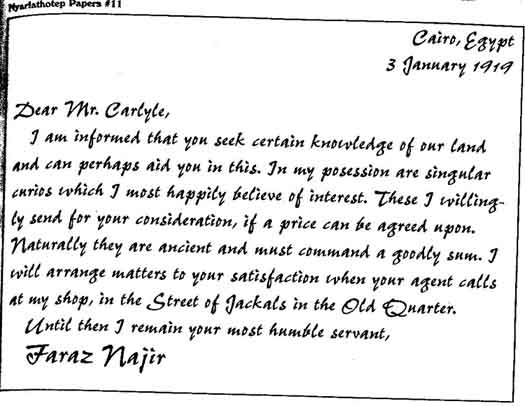 Nyarlathotep Papers #11
Cairo, Egypt
3 January 1919
Dear Mr. Carlyle,
I am informed that you seek certain knowledge of our land
and can perhaps aid you in this. In my posession are singular
curios which I most happily believe of interest. These I willing-
ly send for your consideration, if a price can be agreed upon.
Naturally they are ancient and must command a goodly sum. I
will arrange matters to your satisfaction when your agent calls
at my shop, in the Street of Jackals in the Old Quarter.
Until then I remain your most humble servant,
Faraz Najir